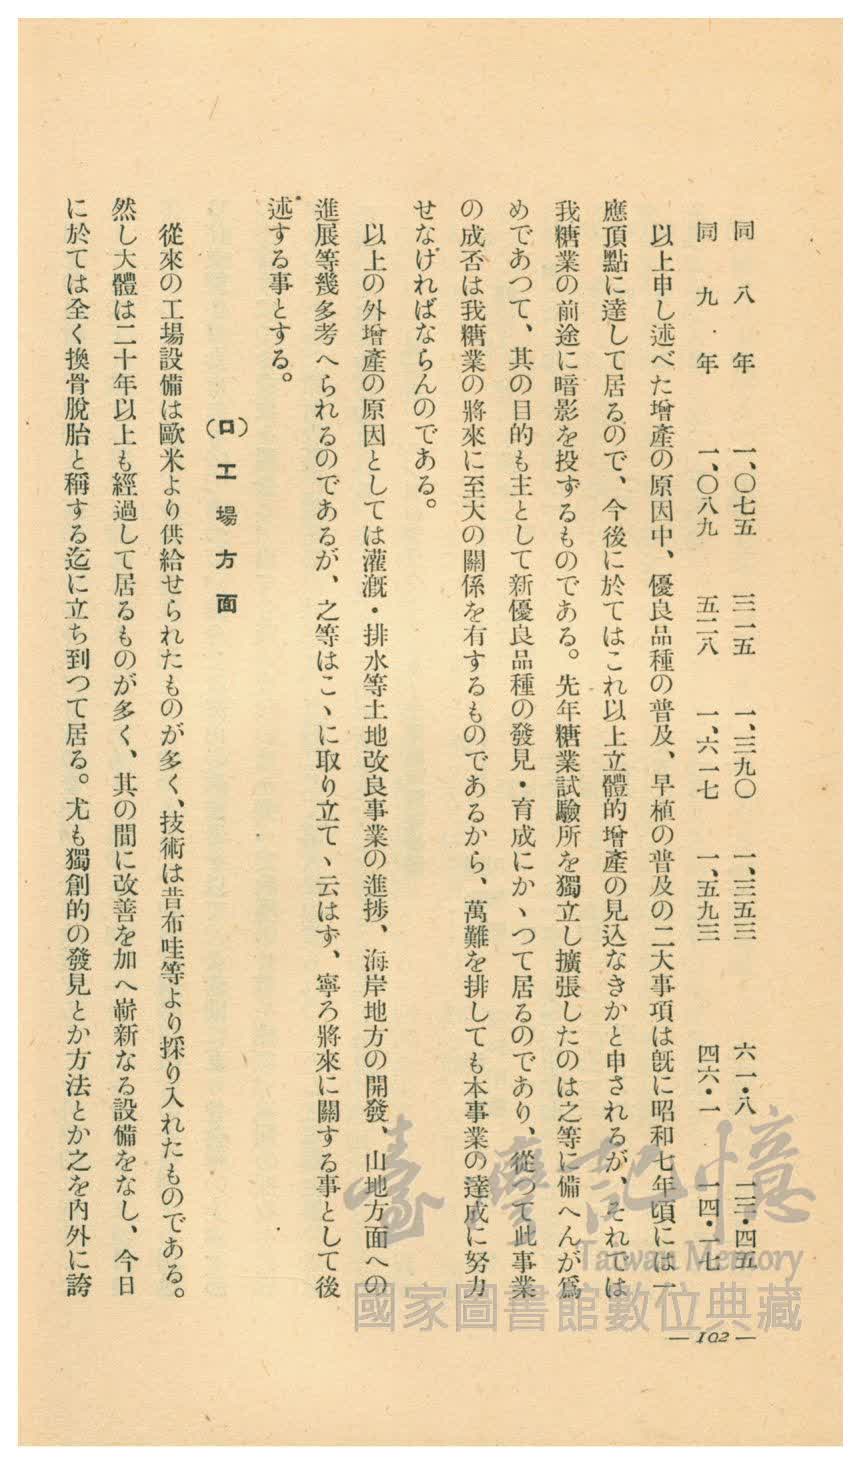 同八年 一、〇七五 三一五 一、三九〇 一、三五三 六一・八 一三・四五
同九・年 一、〇八九 五二八 一、六一七 一、五九三 四六・一 一四・一七
以上申し述べた增產の原因中、優良品種の普及、早植の普及の二大事項は旣に昭和七年頃には一
應頂點に達して居るので、今後に於てはこれ以上立體的增產の見込なきかと申されるが、それでは
我糖業の前途に暗影を投ずるものである。先年糖業試驗所を獨立し擴張したのは之等に備へんが爲
めであつて、其の目的も主として新優良品種の發見・育成にかゝつて居るのであり、從つて此事業
の成否は我糖業の將來に至大の關係を有するものであるから、萬難を排しても本事業の達成に努力
せなければならんのである。
以上の外增產の原因としては灌漑・排水等土地改良事業の進捗、海岸地方の開發、山地方面への
進展等幾多考へられるのであるが、之等はこゝに取り立てゝ云はず、寧ろ將來に關する事として後
述する事とする。
(ロ)工場方面
從來の工場設備は歐米より供給せられたものが多く、技術は昔布哇等より採り入れたものである。
然し大體は二十年以上も經過して居るものが多く、其の間に改善を加へ嶄新なる設備をなし、今日
に於ては全く換骨脫胎と稱する迄に立ち到つて居る。尤も獨創的の發見とか方法とか之を內外に誇
— 102 —
臺灣記憶
Taiwan Memory
國家圖書館數位典藏